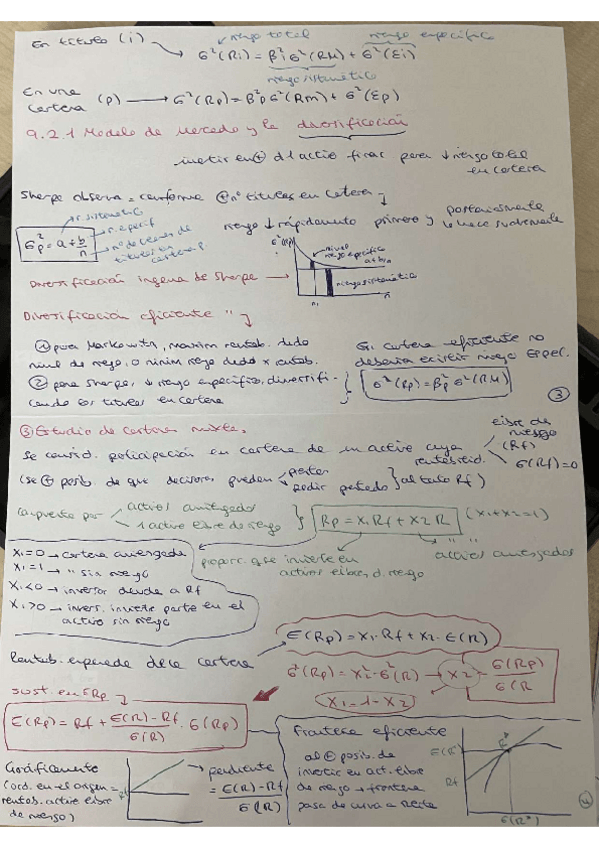 En título (i) → σ²(Ri) = β²i σ²(RM) + σ²(Ei)
riesgo total
riesgo específico
riesgo sistemático
En una cartera (p) → σ²(Rp) = β²p σ²(Rm) + σ²(Ep)
9.2.1 Modelo de Mercado y la diversificación
para ↓ riesgo total
en cartera
Sharpe observa = conforme ⊕ nº títulos en cartera
riesgo ↓ rápidamente primero y posteriormente
lo hace suavemente
r. sistemático
r. específ
σ²p = a + b/n
nº de
títulos en
cartera
σ²(Rp)
nivel
riesgo específico
a + b/n
riesgo sistemático
n₁
n
Diversificación ingenua de Sharpe →
Diversificación eficiente "
① para Markowitz, maxim rentab. dado
nivel de riesgo, o minim riesgo dado x rentab.
② para Sharpe, ↓ riesgo específico, diversifi-
cando los títulos en cartera
cartera eficiente no
debería existir riesgo espec.
σ²(Rp) = β²p σ²(RM)
③
③ Estudio de carteras mixtas
Se consid. participación en cartera de un activo cuya
rentabilid.
libre de
riesgo
(Rf)
σ(Rf) = 0
(se ⊕ posib. de que decisores pueden
prestar
pedir prestado
al tasa Rf)
compuesta por
activos arriesgados
1 activo libre de riesgo
Rp = x₁ Rf + x₂ R
(x₁ + x₂ = 1)
proporc. que invierte en
activos libres d. riesgo
" "
activos arriesgados
x₁ = 0 → cartera arriesgada
x₁ = 1 → " sin riesgo
x₁ < 0 → inversor deuda a Rf
x₁ > 0 → invers. invierte parte en el
activo sin riesgo
Rentab. esperada de la cartera
E(Rp) = x₁·Rf + x₂·E(R)
σ²(Rp) = x₂²·σ²(R) → x₂ = σ(Rp)/σ(R
x₁ = 1 - x₂
sust. en ERp
E(Rp) = Rf + E(R) - Rf / σ(R) · σ(Rp)
Gráficamente
(ord. en el origen =
rentab. activo libre
de riesgo)
Rf
pendiente
= E(R) - Rf / σ(R)
Frontera eficiente
al ⊕ posib. de
invertir en act. libre
de riesgo → frontera
pasa de curva a recta
Rf
④